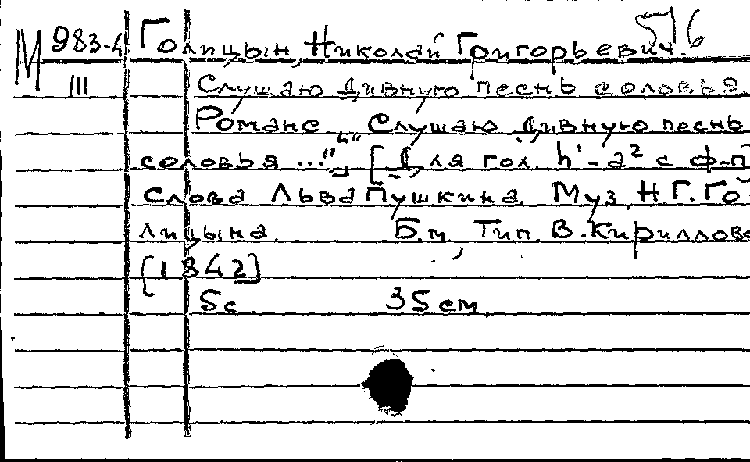 516
М 983-4 Голицын, Николай Григорьевич.
III Слушаю дивную песнь соловья.
Романс „Слушаю дивную песнь
соловья ..." [Для гол. h¹-a² с ф-п]
Слова Льва Пушкина. Муз. Н.Г.Го-
лицына. Б.м, Тип. В.Кириллова
[1842]
5с 35см